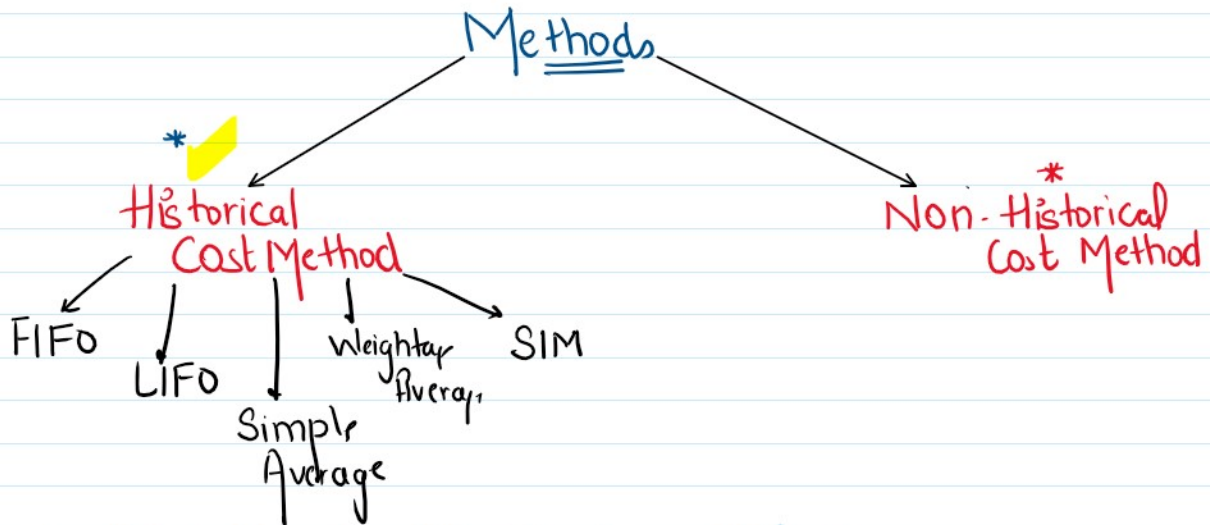 Methods
*
*
Historical
Cost Method
Non-Historical
Cost Method
FIFO
LIFO
Simple
Average
Weightap
Averag,
SIM